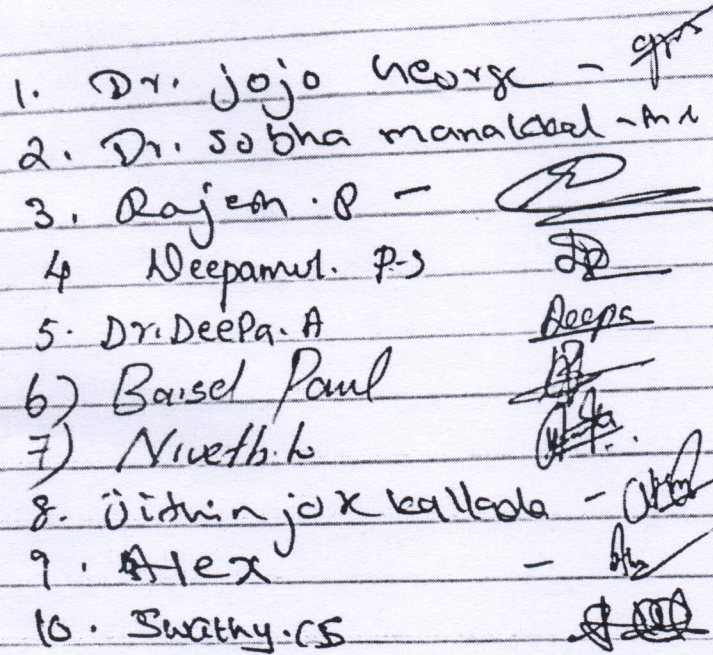 1. Dr. jojo George -
2. Dr. sobha manakkal -
3. Rajesh . P -
4 Deepamol. P-S
5. Dr. DeePa. A Deepa
6) Basel Paul
7) Niveth. L
8. Jithin jox kallada -
9. Alex -
10. Swathy. CS